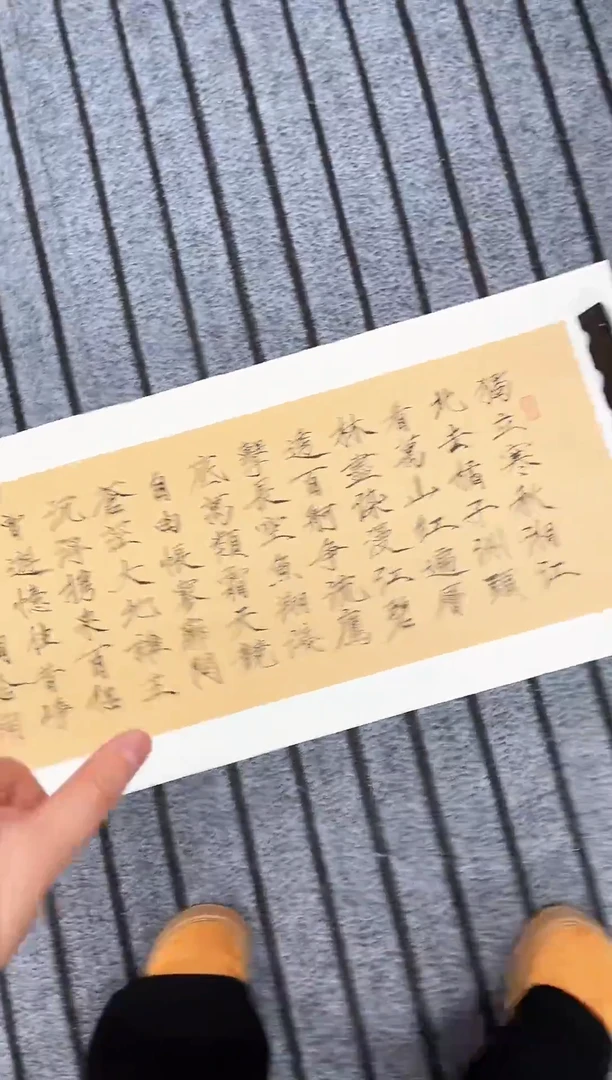 獨立寒秋湘江
北去桔子洲頭
看萬山紅遍層
林盡染漫江碧
透百舸爭流鷹
擊長空魚翔淺
底萬類霜天競
自由悵寥廓問
蒼茫大地誰主
沉浮攜來百侶
曾遊憶往昔崢